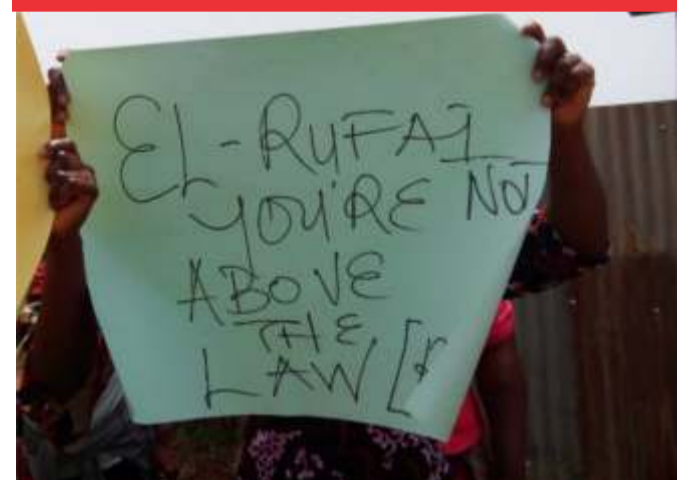 EL-RUFAI
YOU'RE NOT
ABOVE
THE
LAW [